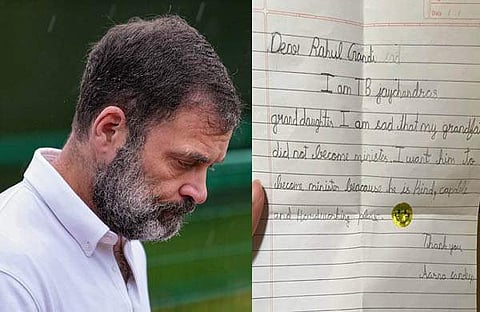 Dear Rahul Gandi
I am TB jaychandras
granddaughter. I am sad that my grandfat
did not become minister. I want him to
become minister beacause he is kind, capable
and hardworking
Thank you